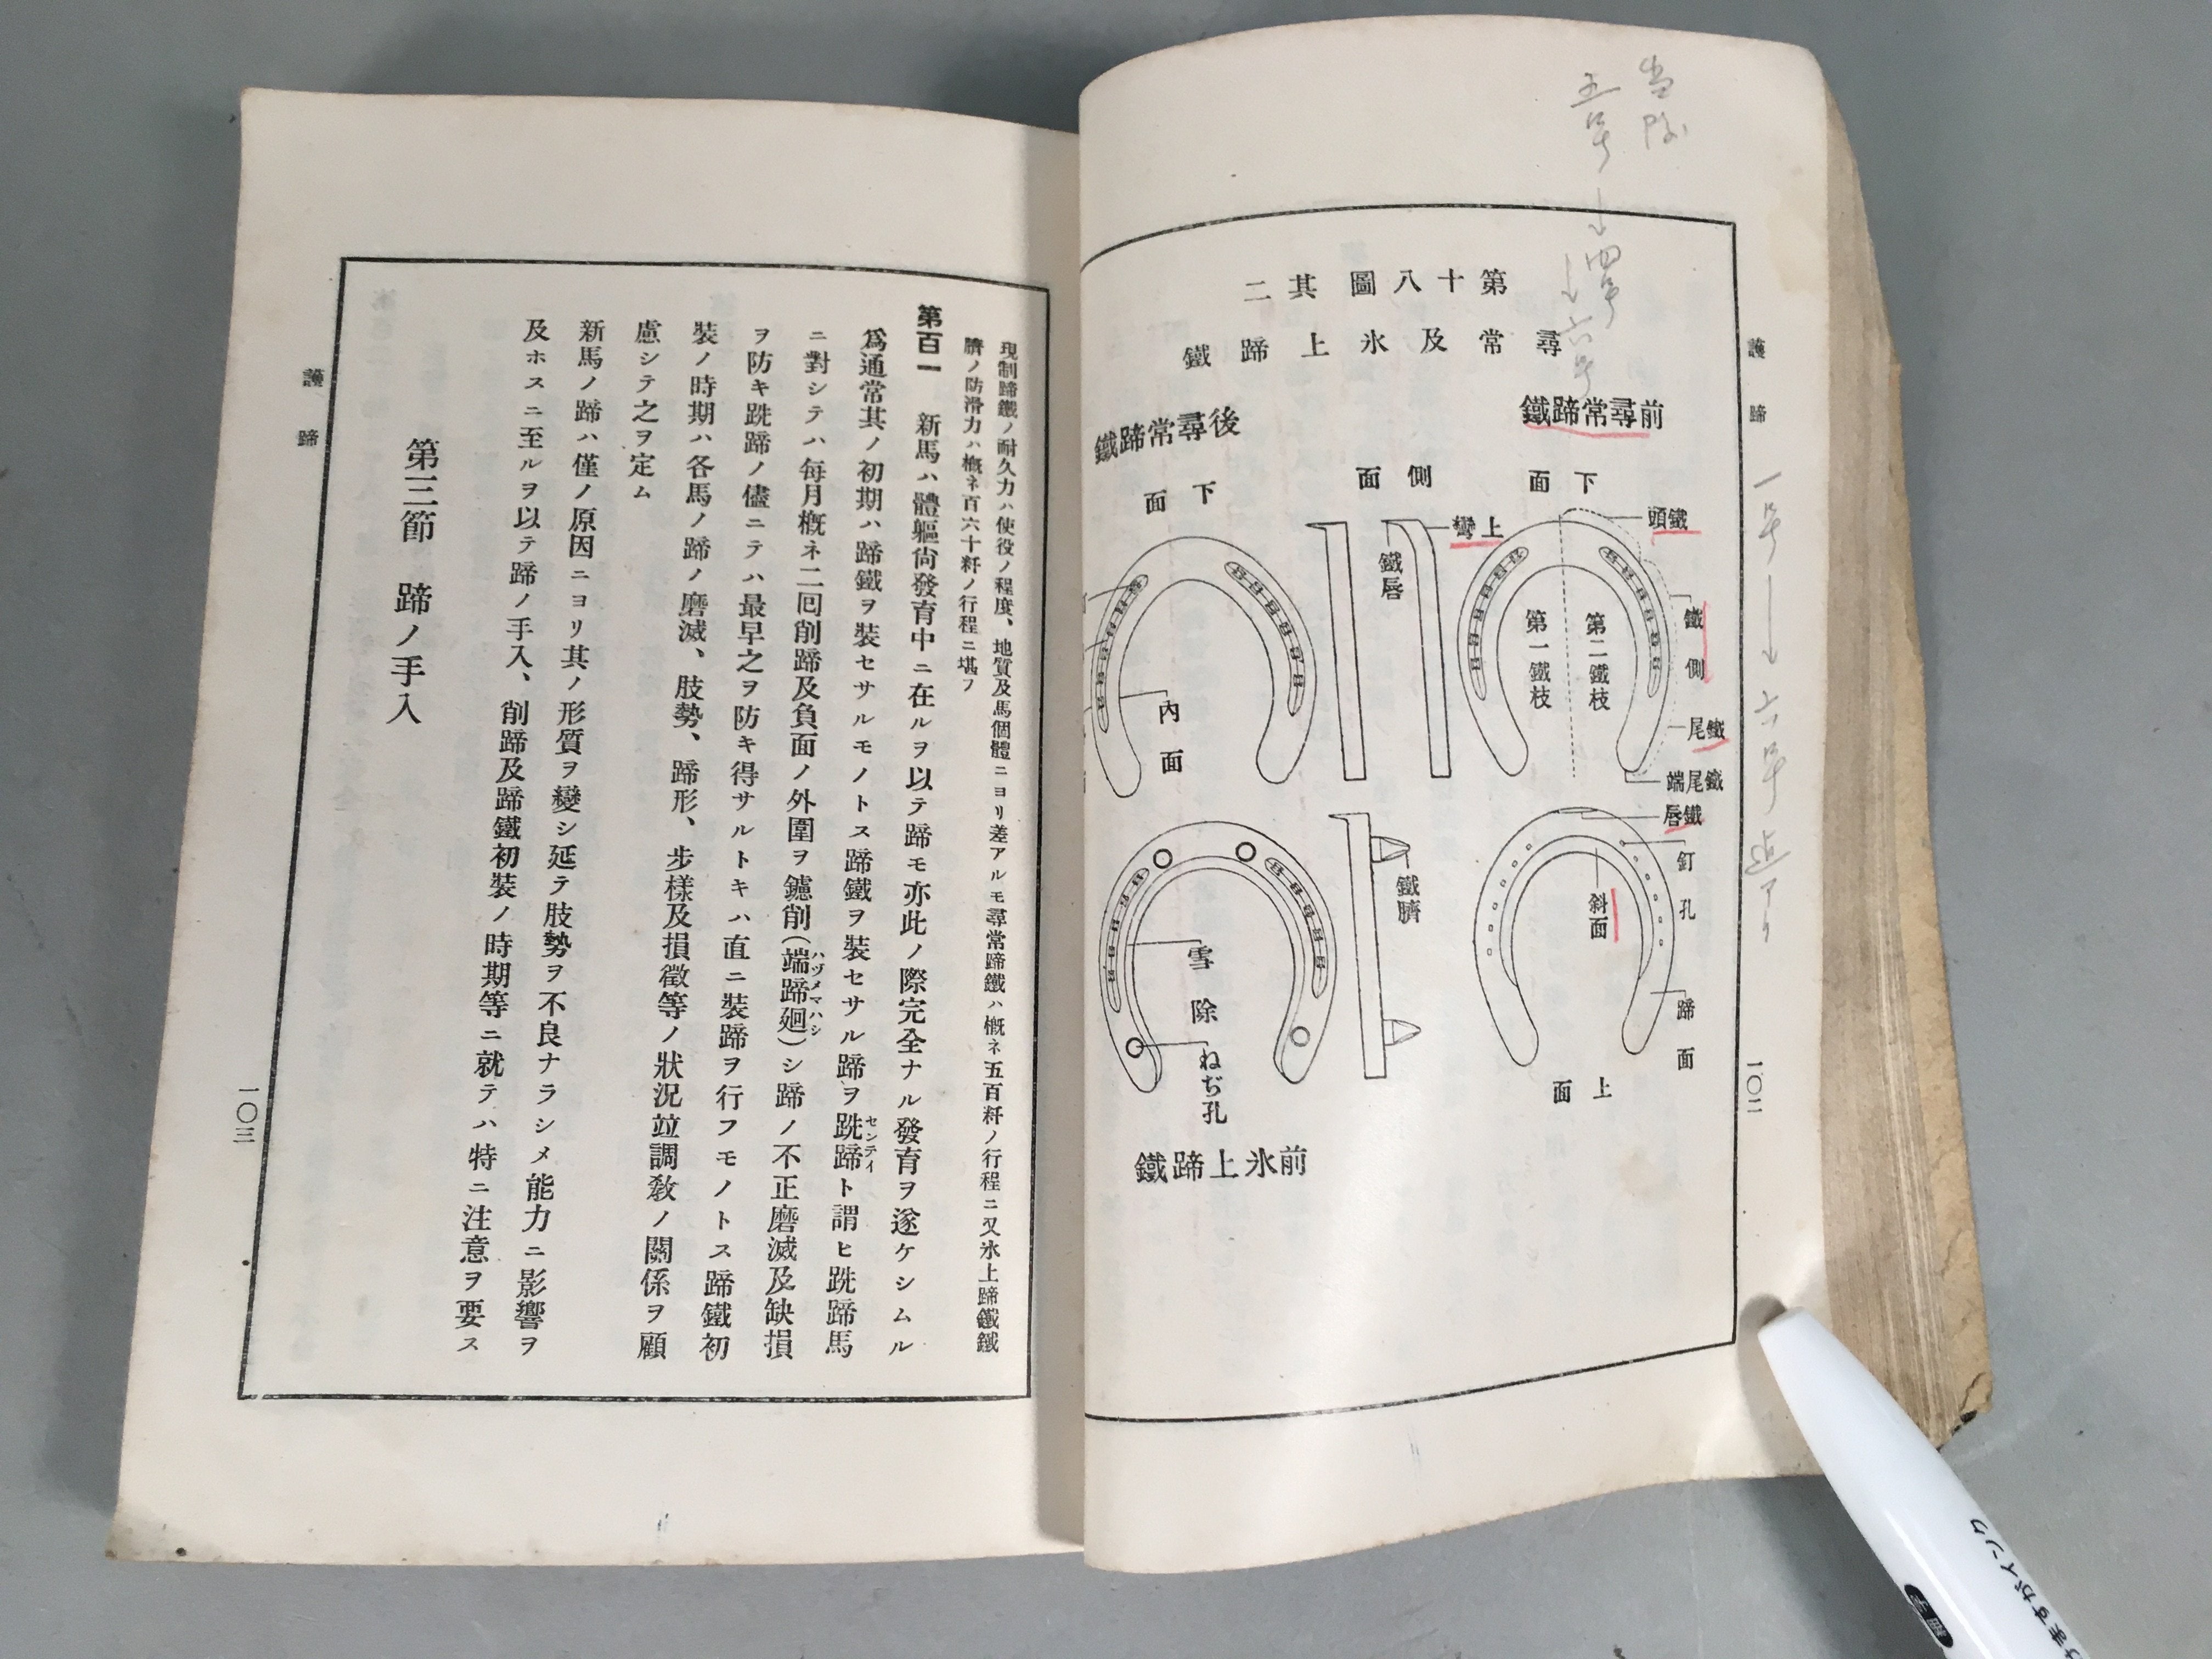 護蹄
一〇二
第十八圖其二
尋常及氷上蹄鐵
前尋常蹄鐵
下面
側面
後尋常蹄鐵
下面
鐵頭
上彎
鐵唇
鐵側
第二鐵枝
第一鐵枝
鐵尾
鐵尾端
內面
鐵唇
釘孔
斜面
蹄面
上面
鐵臍
雪除
ねぢ孔
前氷上蹄鐵
当隊
五号→四号→六号
一号→六号迄アリ
現制蹄鐵ノ耐久力ハ使役ノ程度、地質及馬個體ニヨリ差アルモ尋常蹄鐵ハ概ネ五百粁ノ行程ニ又氷上蹄鐵鐵
臍ノ防滑力ハ概ネ百六十粁ノ行程ニ堪フ
第百一 新馬ハ體軀尙發育中ニ在ルヲ以テ蹄モ亦此ノ際完全ナル發育ヲ遂ケシムル
爲通常其ノ初期ハ蹄鐵ヲ裝セサルモノトス蹄鐵ヲ裝セサル蹄ヲ跣蹄ト謂ヒ跣蹄馬
センテイ
ニ對シテハ每月概ネ二囘削蹄及負面ノ外圍ヲ鑢削(端蹄廻)シ蹄ノ不正磨滅及缺損
ハヅメマハシ
ヲ防キ跣蹄ノ儘ニテハ最早之ヲ防キ得サルトキハ直ニ裝蹄ヲ行フモノトス蹄鐵初
裝ノ時期ハ各馬ノ蹄ノ磨滅、肢勢、蹄形、步樣及損徵等ノ狀況竝調敎ノ關係ヲ顧
慮シテ之ヲ定ム
新馬ノ蹄ハ僅ノ原因ニヨリ其ノ形質ヲ變シ延テ肢勢ヲ不良ナラシメ能力ニ影響ヲ
及ホスニ至ルヲ以テ蹄ノ手入、削蹄及蹄鐵初裝ノ時期等ニ就テハ特ニ注意ヲ要ス
第三節 蹄ノ手入
護蹄
一〇三
細字
ますがインク